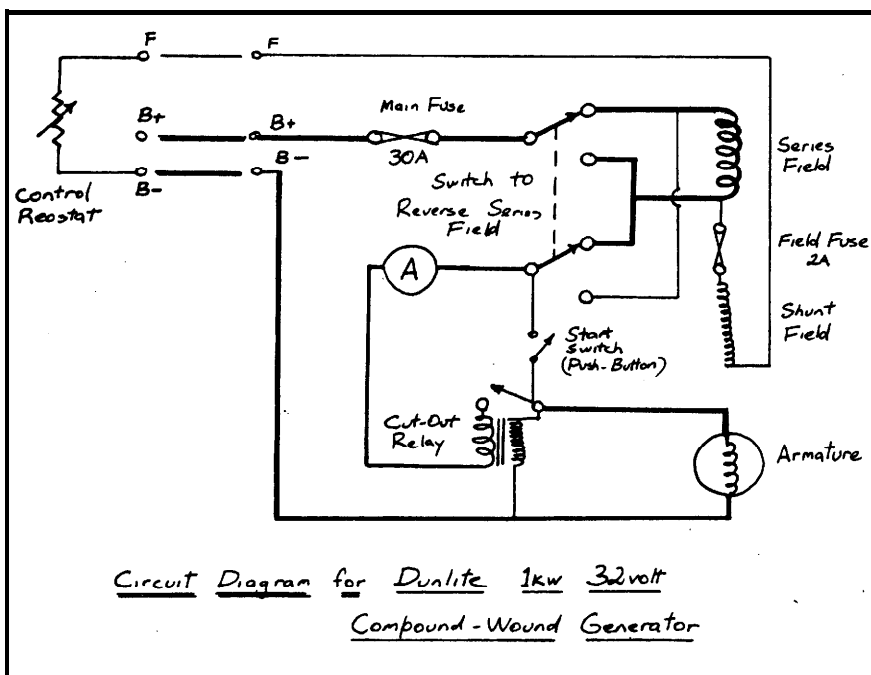 F
F
B+
B+
B-
B-
Control
Reostat
Main Fuse
30A
Switch to
Reverse Series
Field
Series
Field
Field Fuse
2A
Shunt
Field
A
Start
Switch
(Push-Button)
Cut-Out
Relay
Armature
Circuit Diagram for Dunlite 1kw 32volt
Compound-Wound Generator